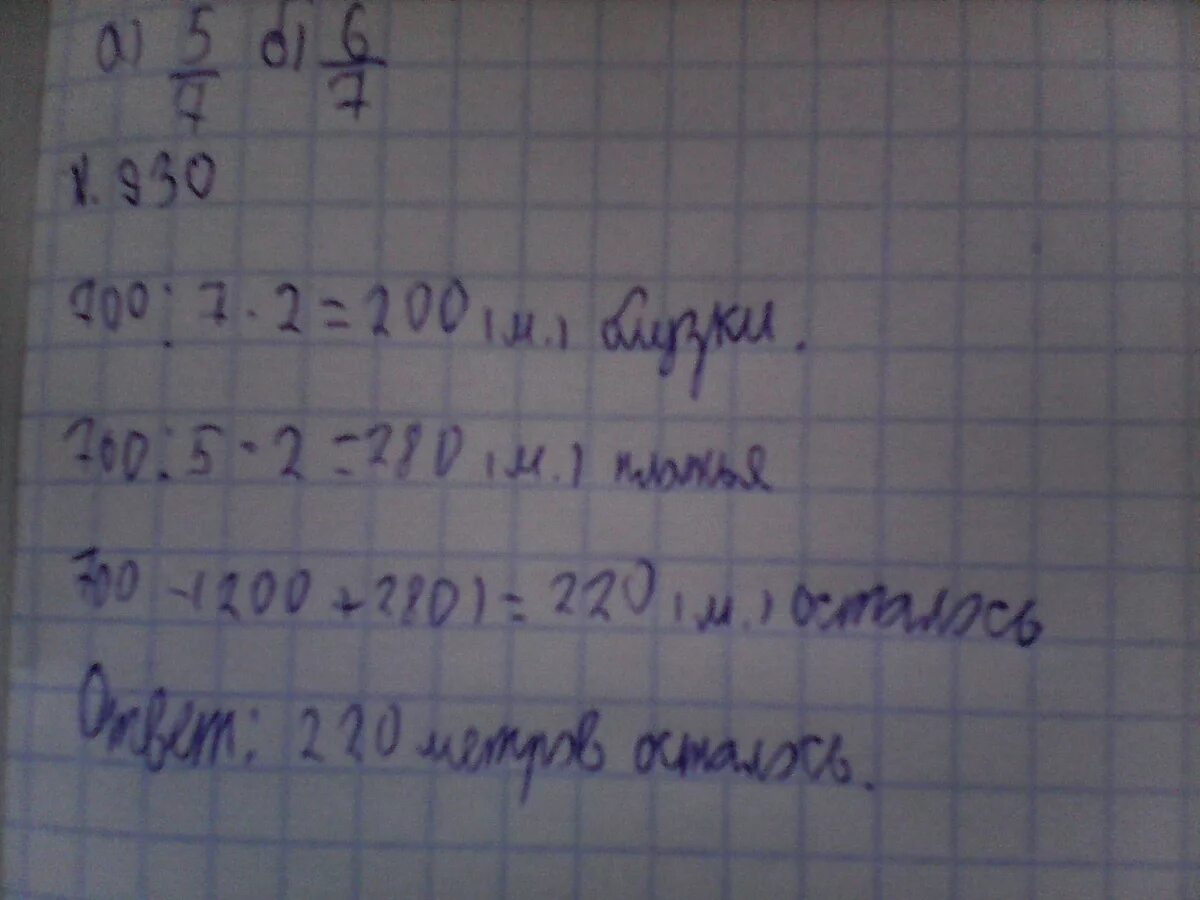 а) 5/7 б) 6/7
н. 930
700 : 7 · 2 = 200 (м.) блузки.
700 : 5 · 2 = 280 (м.) платья
700 - (200 + 280) = 220 (м.) осталось
Ответ: 220 метров осталось.